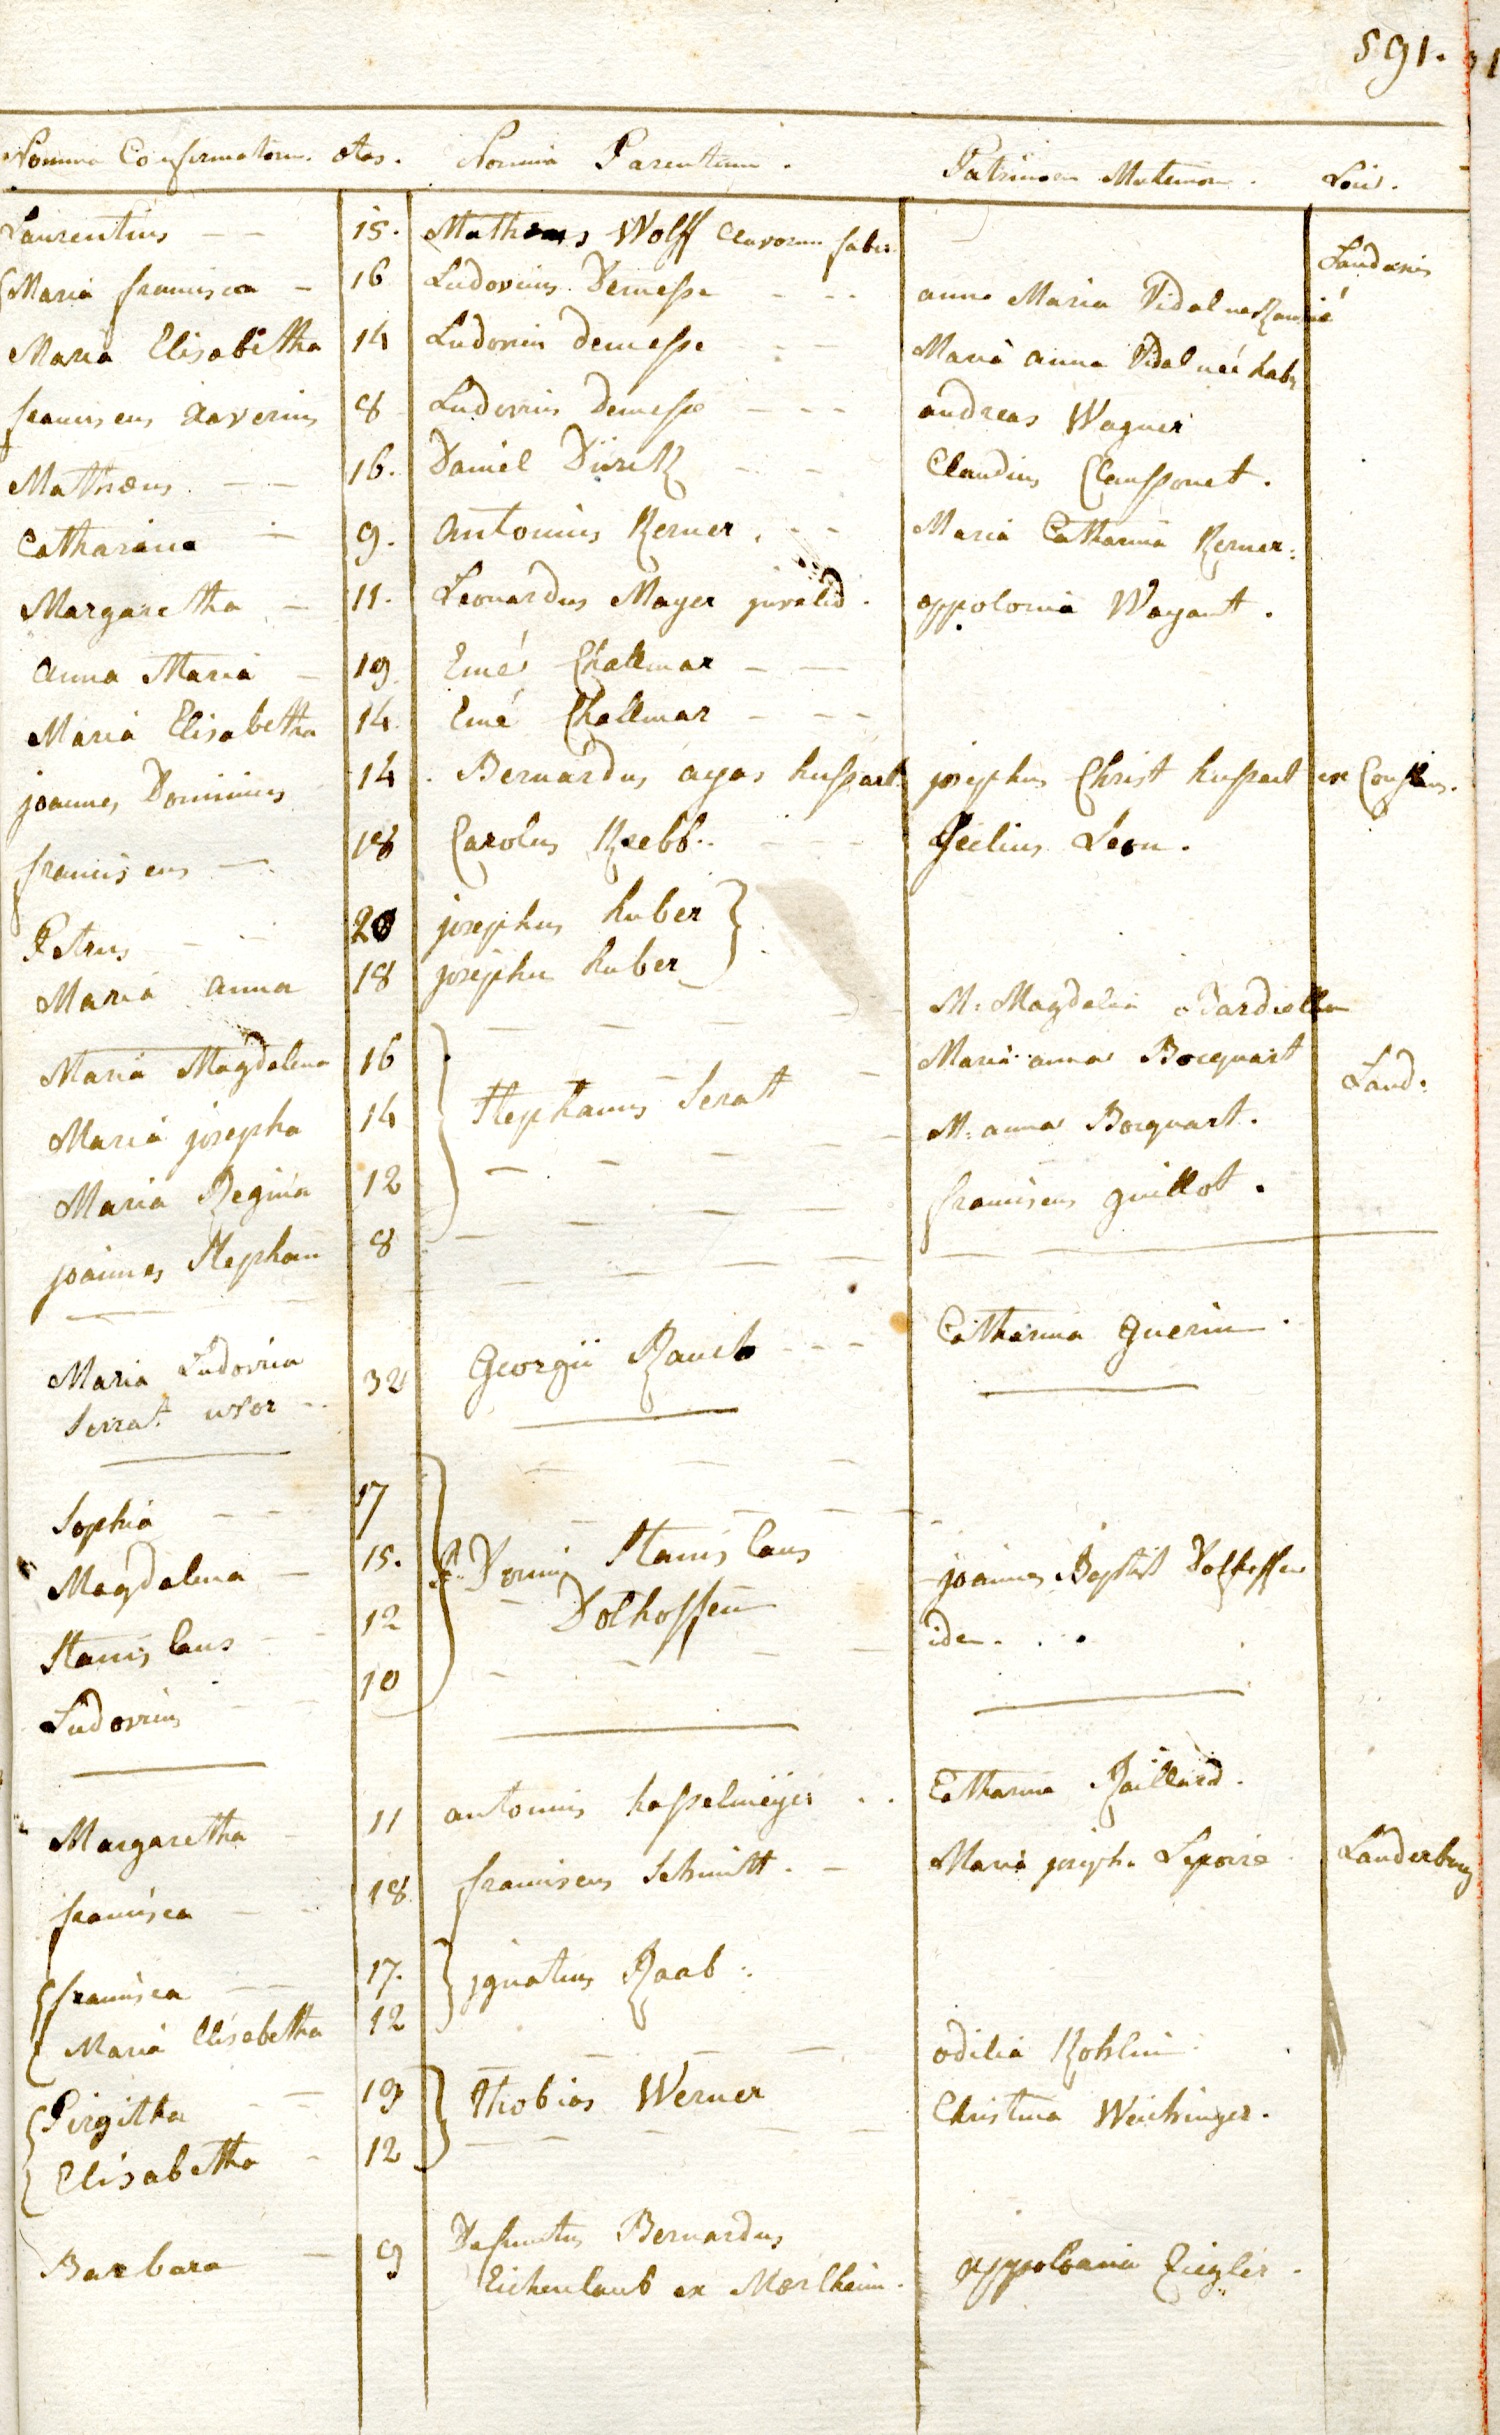 591.
Nomina Confirmatorum. Ætas. Nomina Parentum. Patrinorum Matrinarum. Loci.
Laurentius 15. Mathæus Wolff Clavorum faber
Landavis
Maria francisca 16 Ludovicus Demesse anna Maria Vidal
Maria Elisabetha 14 Ludovicus demesse Maria anna Vidal née
franciscus Xaverius 8 Ludovicus Demesse andreas Wagner
Mathæus 16. Daniel Dürck Claudius Claussonet.
Catharina 9. Antonius Kerner. Maria Catharina Kerner.
Margaretha 11. Leonardus Mayer invalid. appolonia Wagant.
Anna Maria 19. Emé Challmar
Maria Elisabetha 14. Emé Challmar
joannes Dominicus 14. Bernardus ayas hussart josephus Christ hussart ex
franciscus 18 Carolus Krebb. Leon.
Petrus 20 josephus huber
Maria Anna 18 josephus huber
M. Magdalena
Maria Magdalena 16 Maria anna Bocquart Land:
Maria josepha 14 Stephanus Serat M. anna Bocquart.
Maria Regina 12 franciscus guillot.
joannes Stephan 8
Maria Ludovica 32 Georgii Rauch Catharina guerin.
Serrat uxor
Sophia 17
Magdalena 15. Domini Stanislaus joannes Baptist Dolhoffen
Stanislaus 12 Dolhoffen idem.
Ludovicus 10
Margaretha 11 antonius hasselmeyer Catharina Gaillard.
francisca 18 franciscus Schmitt. Maria joseph. Lepoire Landerburg
francisca 17. jgnatius Raab.
Maria Elisabetha 12
odilia Kohlin
Pirgitha 19 Thobias Werner Christina Weichinger.
Elisabetha 12
Barbara 9 Defunctus Bernardus
Eichenlaub ex Mœrlheim. appolonia Ziegler.